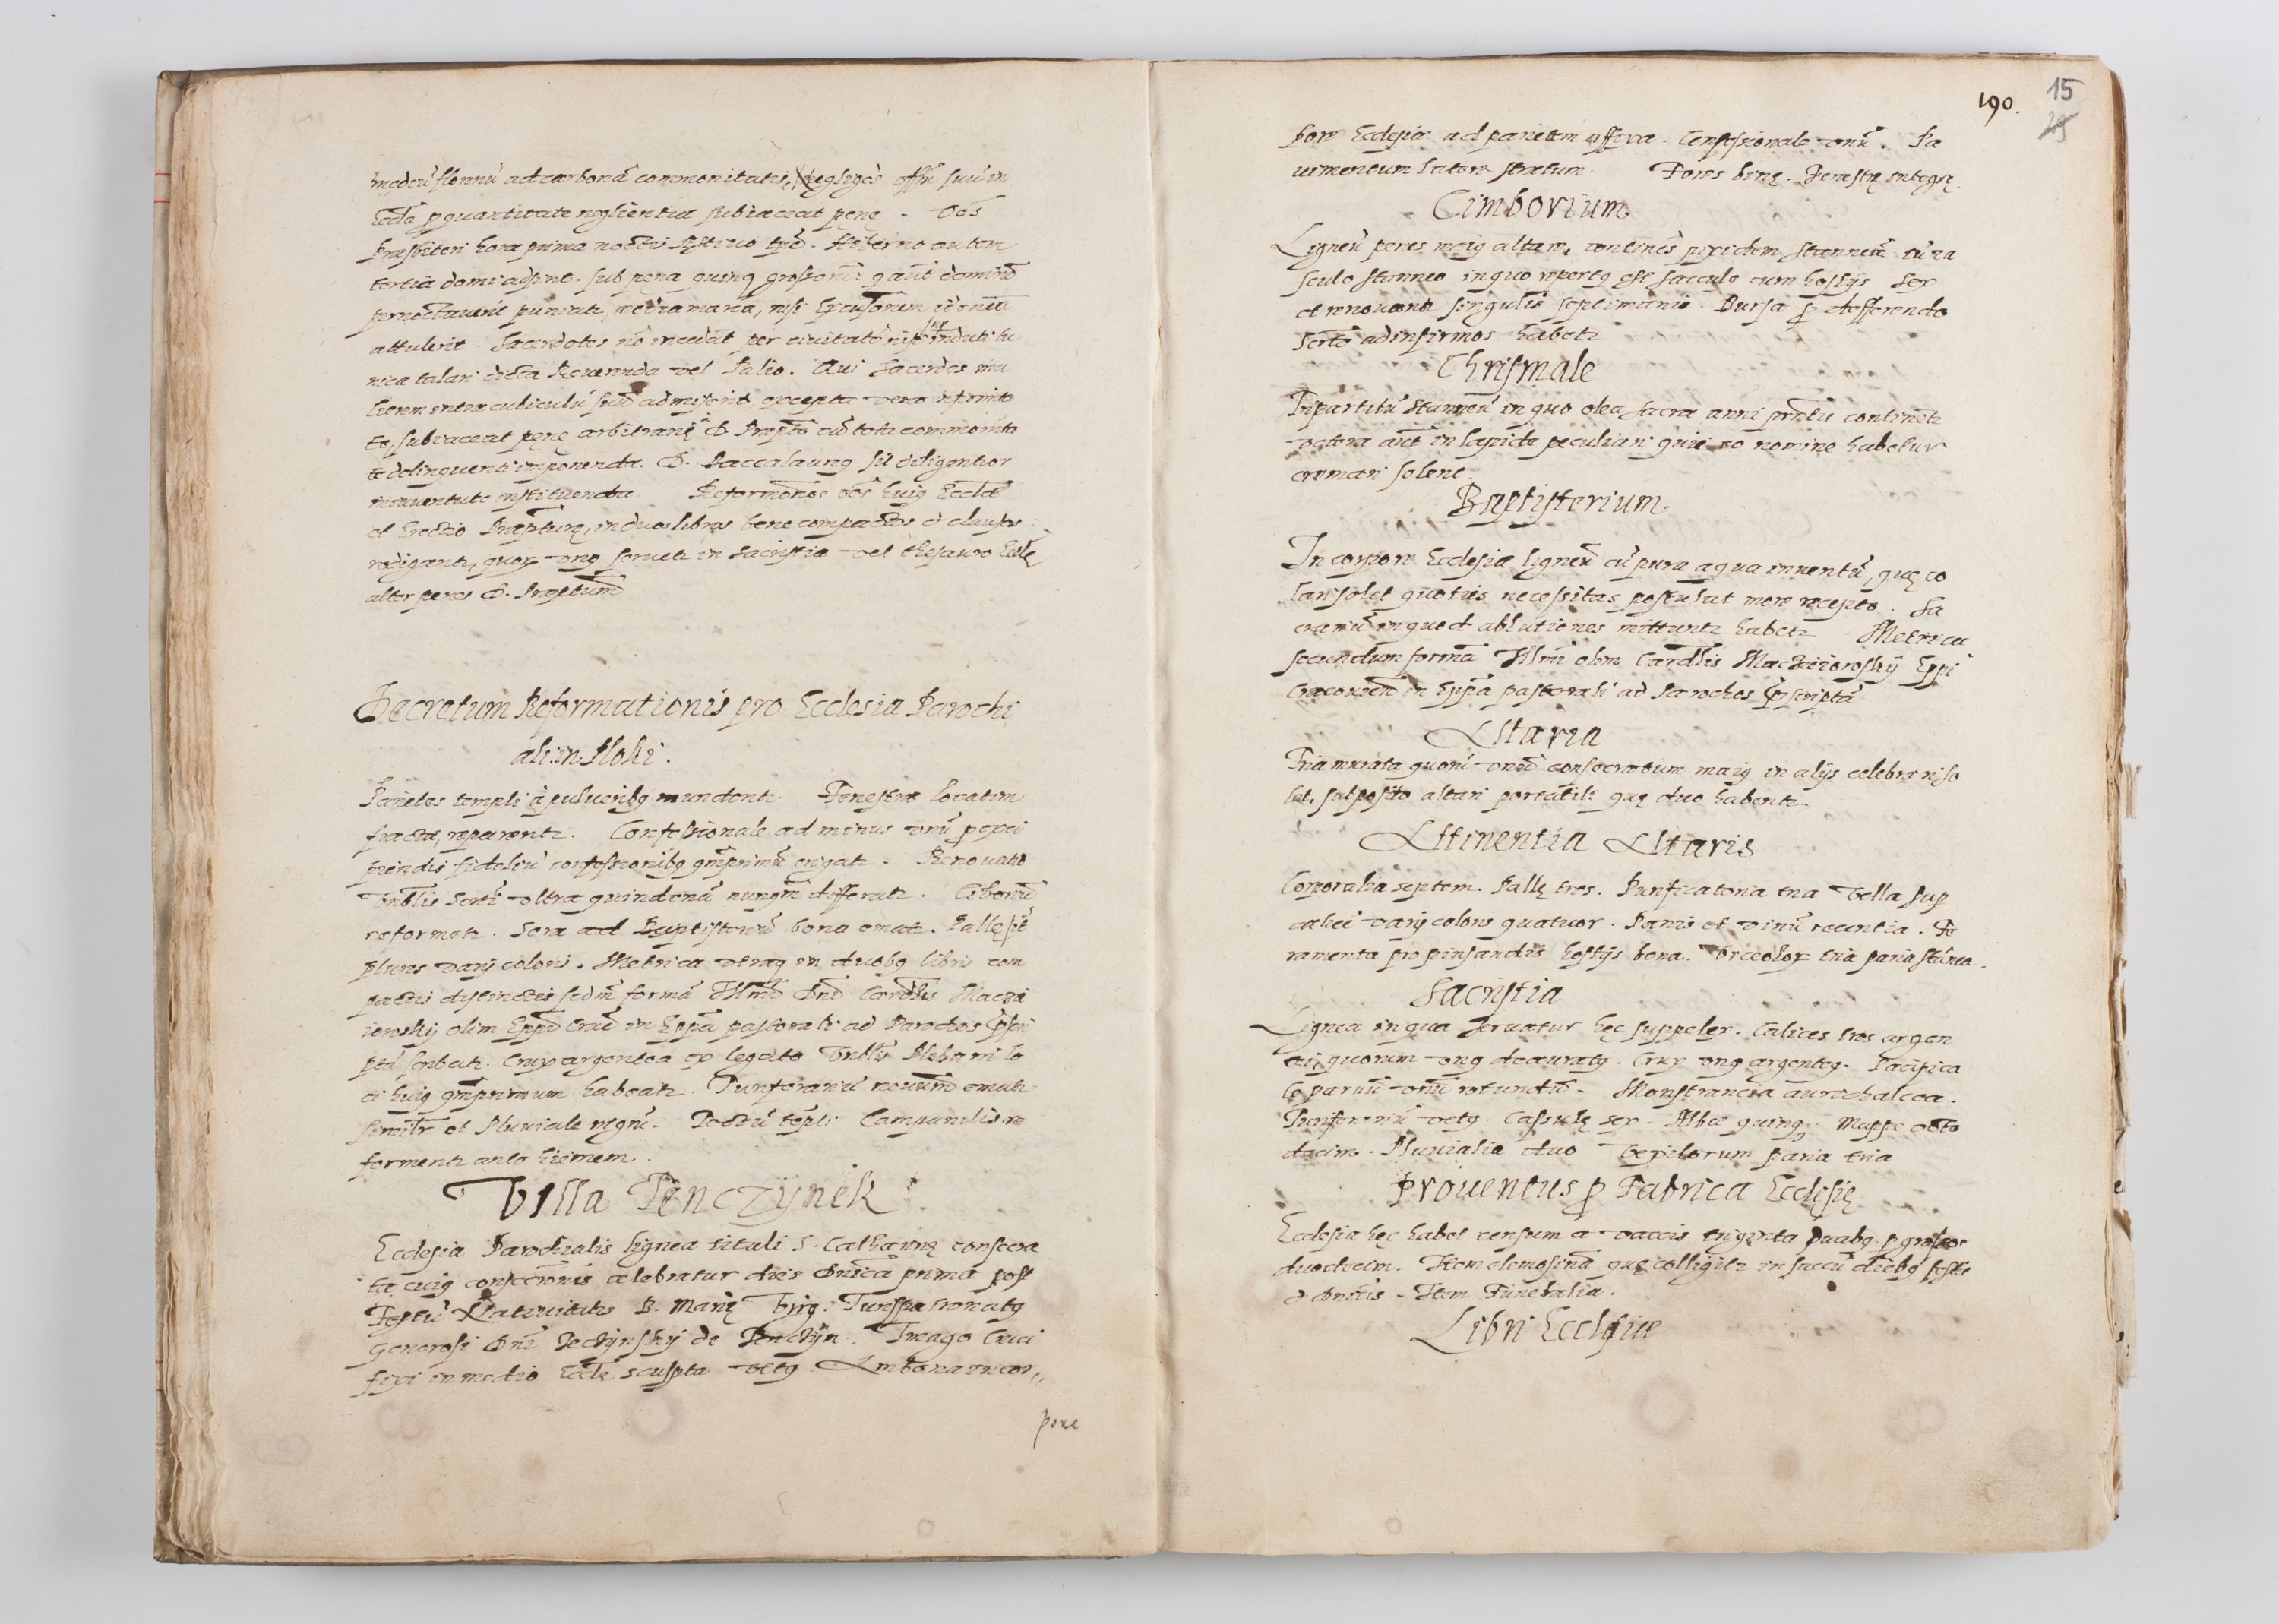 medeū florenū ad carbonā commonitatis, negliges offm̄ suū in
Ecclā p quantitate neglientiæ subiaceat penę. Oēs
Præsbiteri hora prima noctis Æstiuo tp̄e. Hÿferno autem
tertia domi adsint. sub pena quinq grossorū: q aūt domū nō
pernoctauerit puniat media marca, nisi excusaōnem idoneā
attulerit. Sacerdotes nō incedāt per ciuitatē nisi induti tu
nica talari dicta Reuerenda vel Palio. Qui Sacerdos mu
lierem intra cubiculū suū admiserit, excepta vera infirmita
te, subiaceat penę arbitrarię D. Præpti cū tota commonita
te delinquenti imponendæ. D. Baccalaureg sit diligentior
in iuuentute instituenda Reformōnes oēs huig Eccliæ
et Erectio Præpturę, in duos libros bene compactos et clausos
redigant, quor vng seruet in Sacristia vel thesauro Ecclę
alter penes D. Præptum
Decretum Reformationis pro Ecclesia Parochi
ali in Ploki.
Parietes templi à pulueribg mundent. Fenestræ locatim
fractæ, reparent. Confessionale ad minus vnū p exci
piendis fideliū confessionibg qmprimū erigat. Renouatio
Vnblis Scrti vltra quindenā nunqm differat. Ciboriū
reformet. Sera ad Baptisteriū bona emat. Pallę sīt
plures varij coloris. Metrica vtraq in duobg libris com
pactis distinctis scdm formā Illmi Dni Cardlis Maczi
iowskij olim Eppi Crac in Eppla pastorali ad Parochos pscri
ptā scribat. Crux argentea ex legato Vnblis Plebani lo
ci huig qmprimum habeat. Turiferariū nouum emat
similr et Pluuiale nigrū. Tectū tēpli Campanilis re
forment ante hiemem.
Villa Tenczÿnek
Ecclesia Parochialis lignea tituli S. Catharinę consecra
ta, cuig consecrōnis celebratur dies Dnica prima post
Festū Natiuitatis B. Marię Virg. Jusspatronatg
Generosi Dni Teczÿnskij de Tenczÿn. Imago Cruci
fixi in medio Ecclę sculpta vetg. Ambona in cor
pore
190.
15
pore Ecclesiæ ad parietem affixa. Confessionale vnū. Pa
uimentum latere stratum Fores binę. Fenestrę integrę.
Cimborium
Ligneū penes maig altare, continēs pixidem stanneā cū va
sculo stanneo in quo repertg est sacculg cum hostijs sex
et renouant singulis septimanis. Bursa p defferendo
Scrto ad infirmos habet
Chrismale
Tripartitū Stanneū in quo olea sacra anni prntis continet
vetera aūt in lapide peculiari qui eo nomine habetur
cremari solent.
Baptisterium.
In corpore Ecclesiæ ligneū cū pura aqua inuentū, quę co
lari solet quoties necessitas postulat more recepto. Sa
crariū in quod ablutiones mittunt habet Metrica
secundum formā Illmi olim Cardlis Macieiowskij Eppi
Cracouien in Eppla pastorali ad Parochos pscriptā
Altaria
Tria murata quorū vnū consecratum maig in alijs celebrari so
let, sutposito altari portatili quę duo habent
Attinentia Altaris
Corporalia septem. Pallę tres. Purificatoria tria Vella sup
calici varij coloris quatuor. Panis et vinū recentia. Fe
ramenta pro pinsandis hostijs bona. Vrceolor tria paria stanea.
Sacristia
Lignea in qua seruatur hęc suppelex. Calices tres argen
tei, quorum vng deauratg. Crux vng argenteg. Pacifica
le paruū vnū rotundū. Monstrancia aurichalcea.
Turiferariū vetg. Cassulę sex. Albæ quinq. Mappe octo
decim. Pluuialia duo Vexilorum paria tria
Prouentus p Fabrica Ecclesię
Ecclesia hęc habet censum a vaccis triginta duabg p grossos
duodecim. Item elemosina quę colligit in saccū diebg festis
et Dnicis. Item Funebralia.
Libri Ecclesiæ